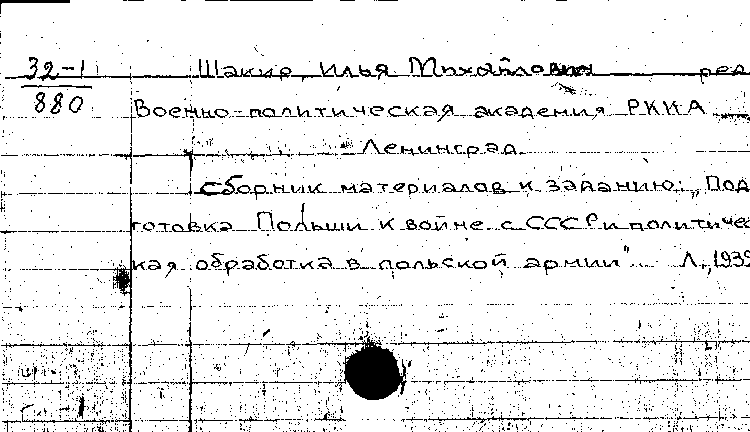 32-1
880
Шакир, Илья Михайлович ред
Военно-политическая академия РККА
Ленинград
Сборник материалов к заданию: „Под
готовка Польши к войне с СССР и политичес
кая обработка в польской армии". Л., 193